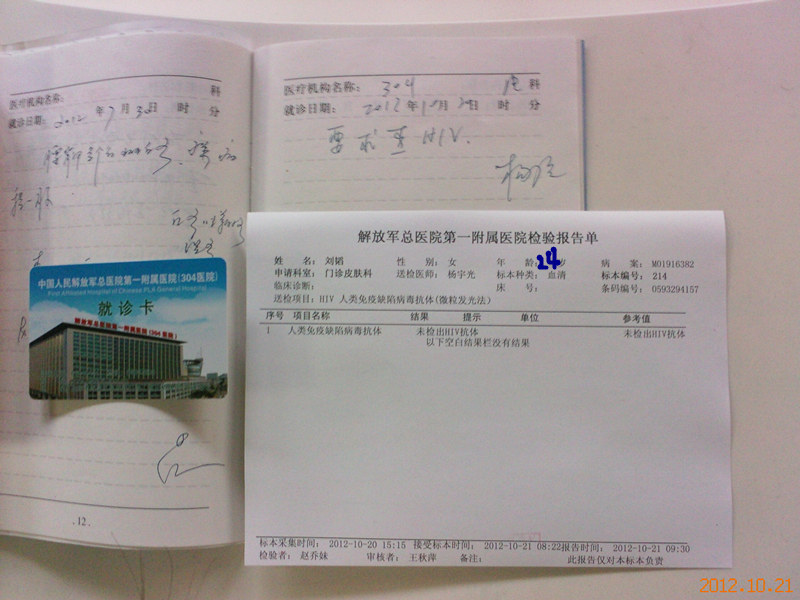 医疗机构名称： 科
就诊日期：2012年7月30日 时 分
.12.
中国人民解放军总医院第一附属医院(304医院)
First Affiliated Hospital of Chinese PLA General Hospital
就诊卡
解放军总医院第一附属医院(304医院)
医疗机构名称：304 科
就诊日期：2012年10月20日 时 分
要求查HIV.
解放军总医院第一附属医院检验报告单
姓 名：刘韬 性 别：女 年 龄：24岁 病 案：M01916382
申请科室：门诊皮肤科 送检医师：杨宇光 标本种类：血清 标本编号：214
临床诊断： 床 号： 条码编号：0593294157
送检项目：HIV 人类免疫缺陷病毒抗体(微粒发光法)
序号 项目名称 结果 提示 单位 参考值
1 人类免疫缺陷病毒抗体 未检出HIV抗体 未检出HIV抗体
以下空白结果栏没有结果
标本采集时间：2012-10-20 15:15 接受标本时间：2012-10-21 08:22报告时间：2012-10-21 09:30
检验者：赵乔妹 审核者：王秋萍 备注： 此报告仅对本标本负责
2012.10.21